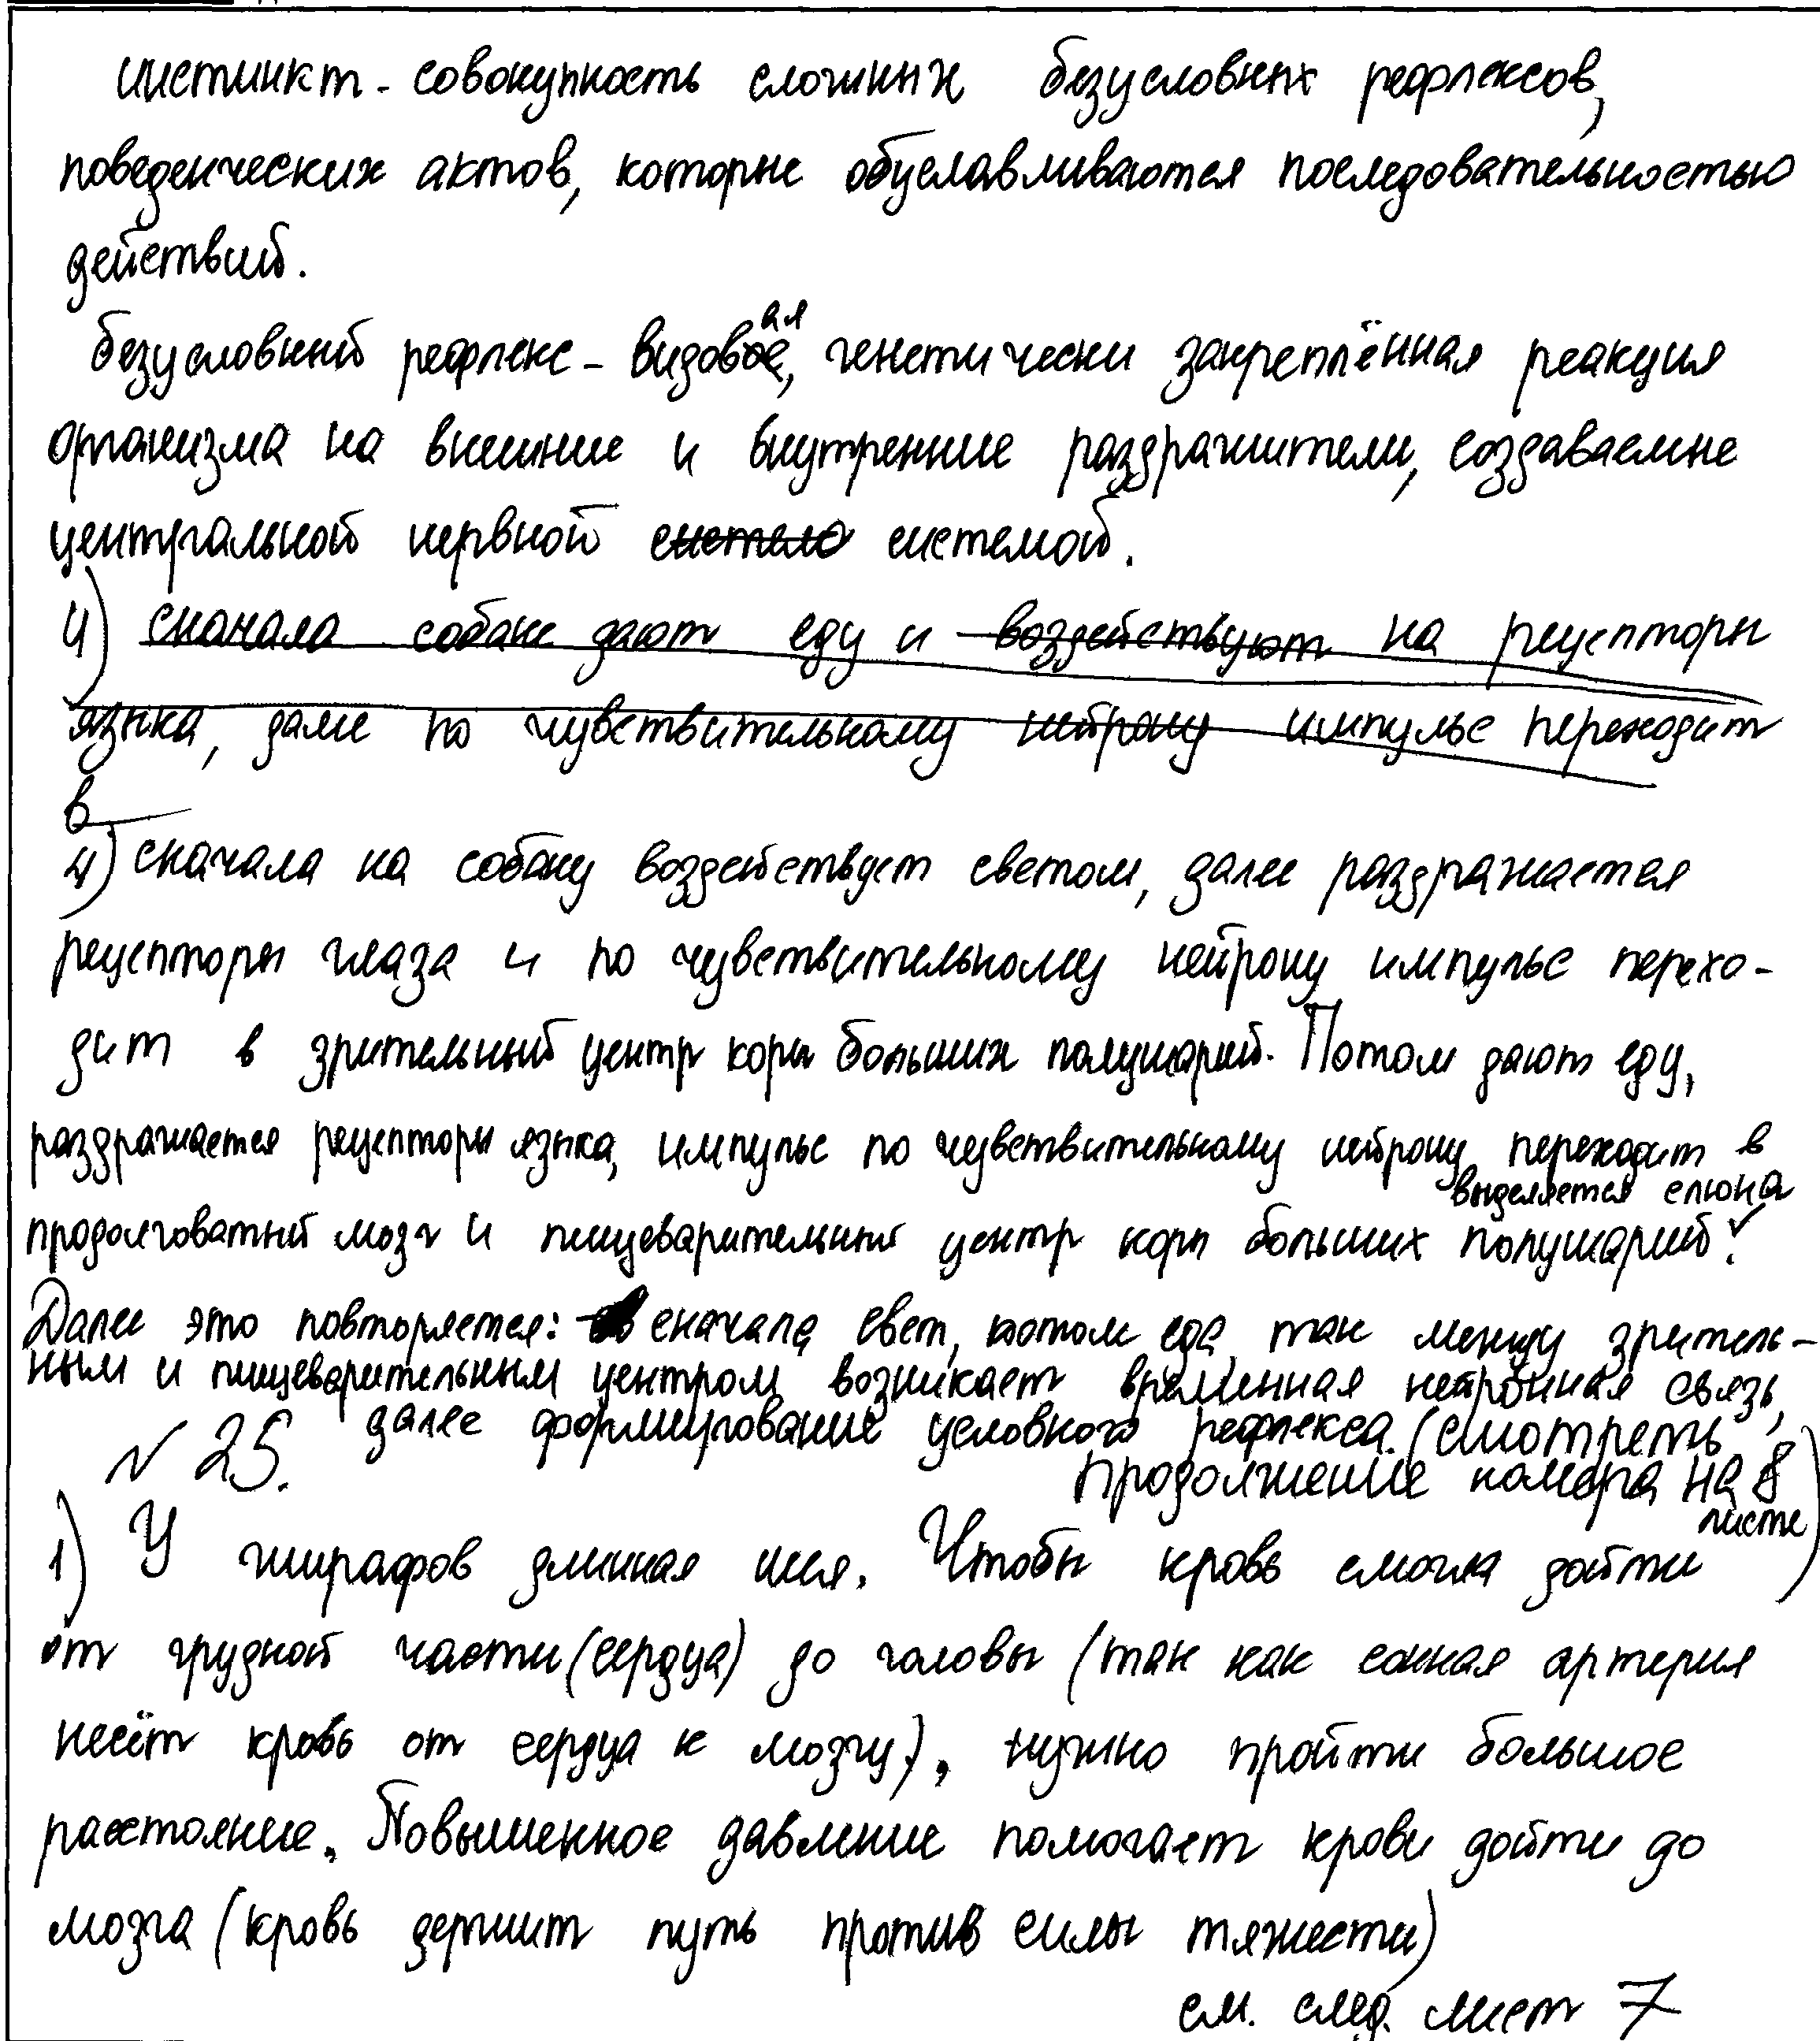 инстинкт - совокупность сложных безусловных рефлексов,
поведенческих актов, которые обуславливаются последовательностью
действий.
безусловный рефлекс - видовая, генетически закреплённая реакция
организма на внешние и внутренние раздражители, создаваемые
центральной нервной системо системой.
4) сначала собаке дают еду и воздействуют на рецепторы
языка, далее по чувствительному нейрону импульс переходит
в
4) сначала на собаку воздействует светом, далее раздражается
рецепторы глаза и по чувствительному нейрону импульс перехо-
дит в зрительный центр коры больших полушарий. Потом дают еду,
раздражается рецепторы языка, импульс по чувствительному нейрону переходит в
выделяется слюна
продолговатый мозг и пищеварительный центр коры больших полушарий.
Далее это повторяется: сначала свет, потом еда, так между зритель-
ным и пищеварительным центром возникает временная нейронная связь,
далее формирование условного рефлекса. (смотреть
№ 25.
продолжение номера на 8
листе)
1) У жирафов длинная шея. Чтобы кровь смогла дойти
от грудной части (сердца) до головы (так как сонная артерия
несёт кровь от сердца к мозгу), нужно пройти большое
расстояние. Повышенное давление помогает крови дойти до
мозга (кровь держит путь против силы тяжести)
см. след. лист 7